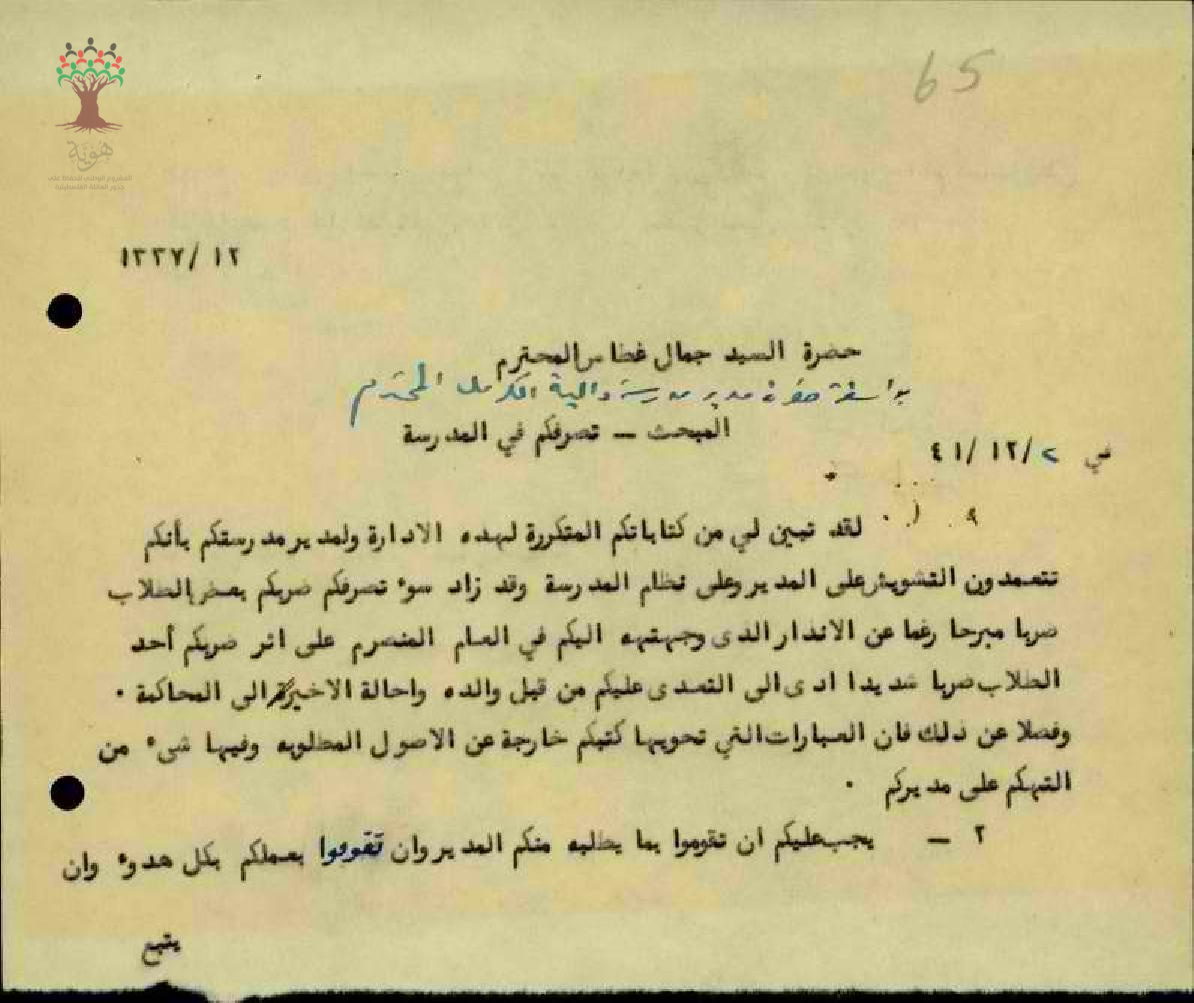 65
هوية
المشروع الوطني للحفاظ على
جذور العائلة الفلسطينية
١٣٣٧/ ١٢
حضرة السيد جمال غطاس المحترم
بواسطة حضرة مدير مدرسة دالية الكرمل المحترم
المبحث — تصرفكم في المدرسة
في ٢/ ١٢/ ٤١
لقد تبين لي من كتاباتكم المتكررة لهذه الادارة ولمدير مدرستكم بأنكم
تتعمدون التشويش على المدير وعلى نظام المدرسة وقد زاد سوء تصرفكم ضربكم بعض الطلاب
ضربا مبرحا رغما عن الانذار الذى وجهته اليكم في العام المنصرم على اثر ضربكم أحد
الطلاب ضربا شديدا ادى الى التعدى عليكم من قبل والده واحالة الاخير الى المحاكمة ٠
وفضلا عن ذلك فان العبارات التي تحويها كتبكم خارجة عن الاصول المطلوبه وفيها شىء من
التهكم على مديركم ٠
٢ — يجب عليكم ان تقوموا بما يطلبه منكم المدير وان تقوموا بعملكم بكل هدوء وان
يتبع